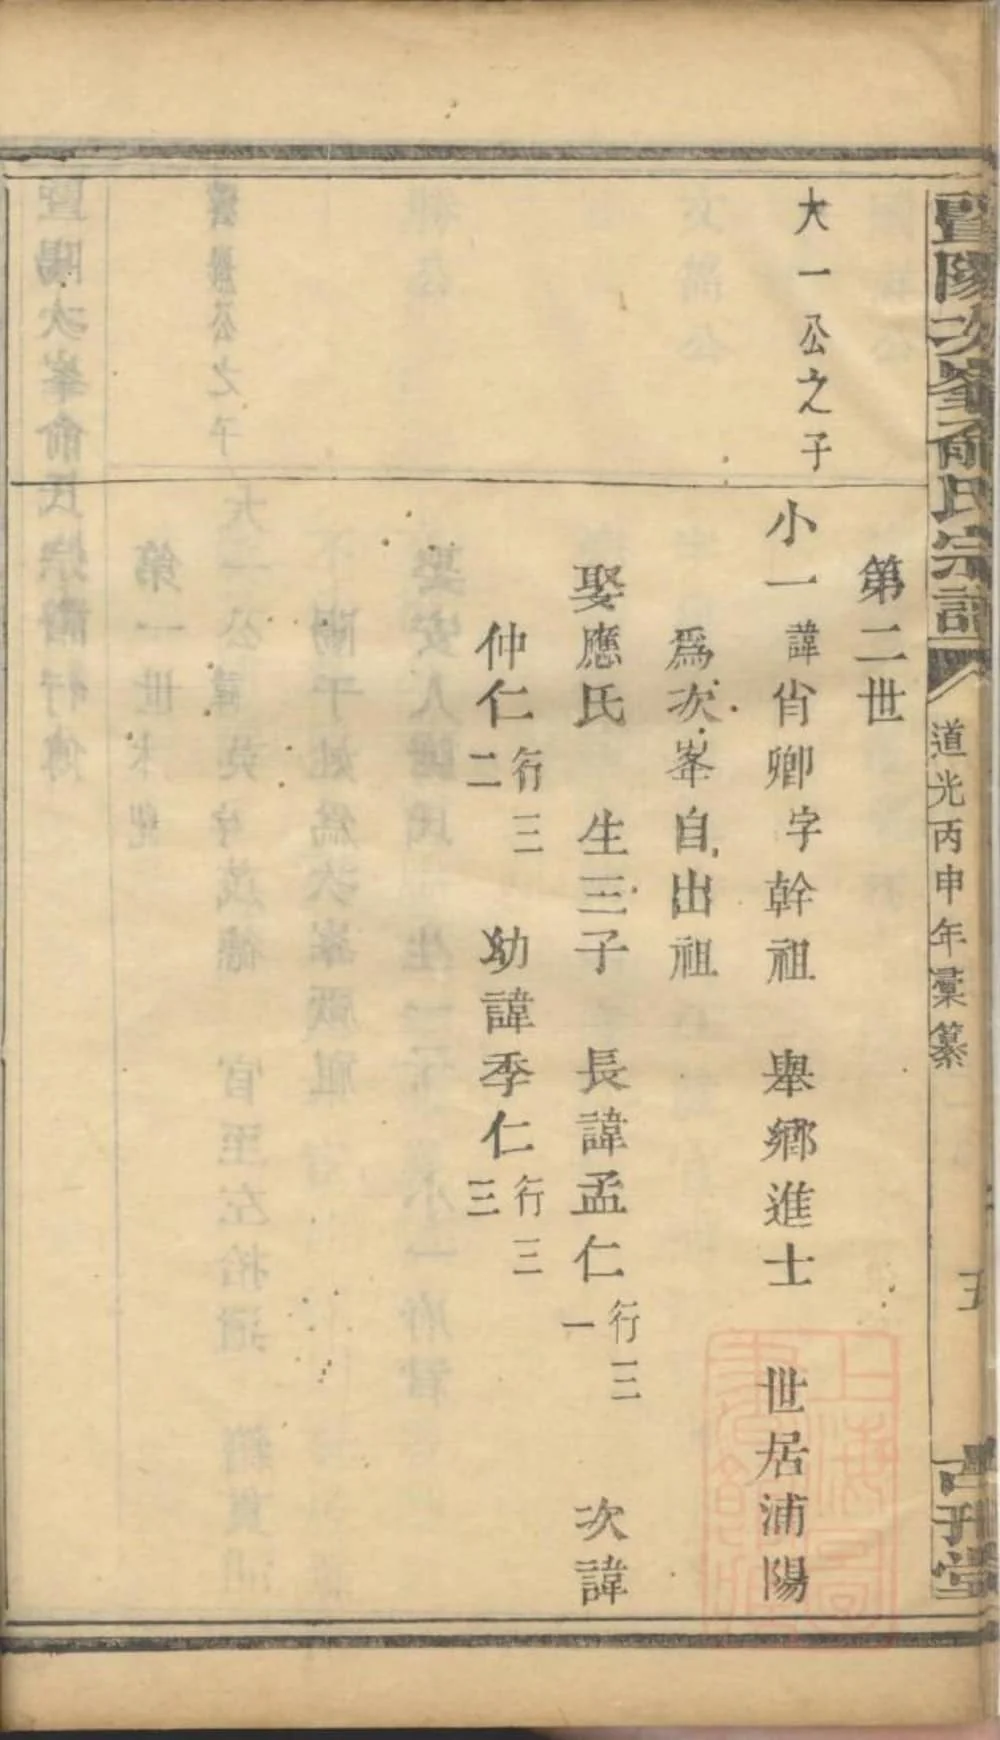 暨陽次峯俞氏宗譜
道光丙申年彙纂
五
第二世
大一公之子
小一諱肖卿字幹祖 舉鄉進士 世居浦陽
為次峯自出祖
娶應氏 生三子 長諱孟仁行三一 次諱
仲仁行三二 幼諱季仁行三三